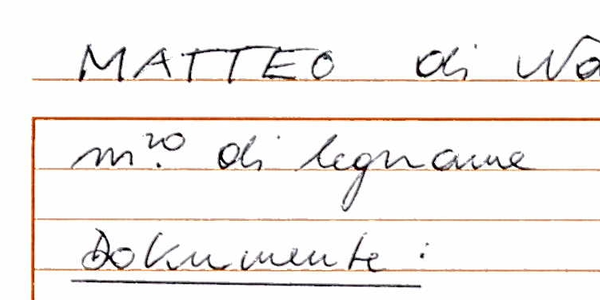 MATTEO di
m.ro di legname
Dokumente: